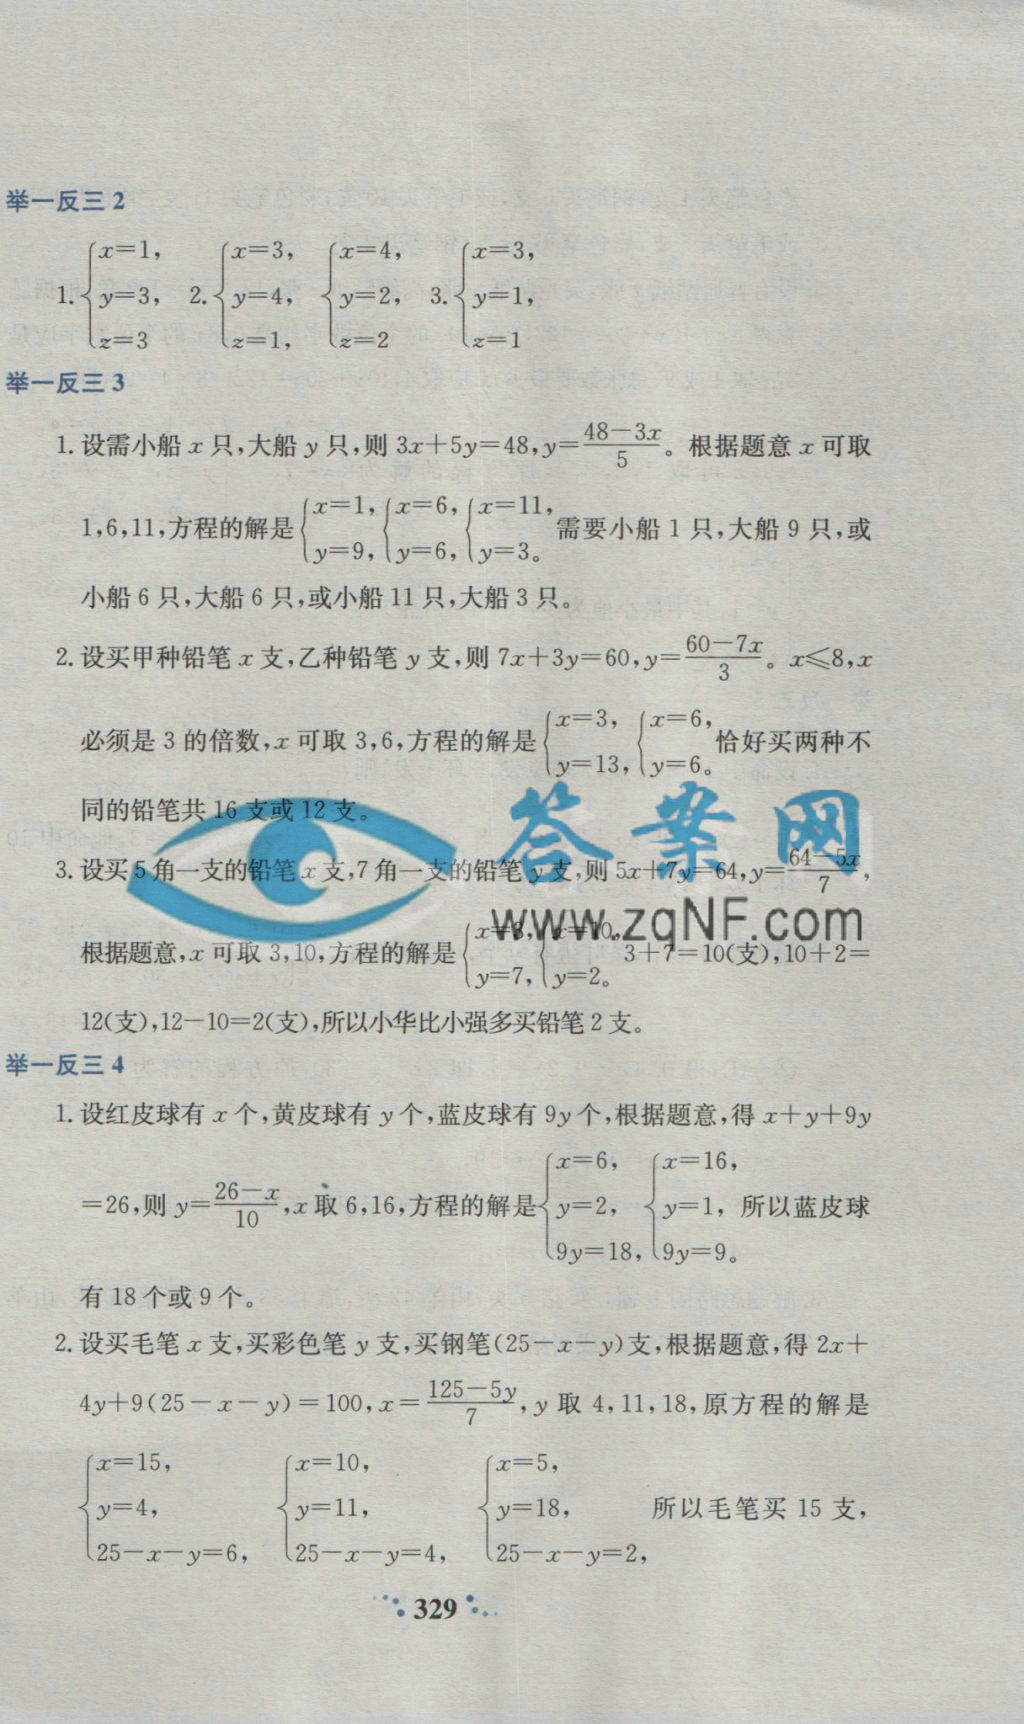 举一反三2
1.{x=1, y=3, z=3 2.{x=3, y=4, z=1, {x=4, y=2, z=2 3.{x=3, y=1, z=1
举一反三3
1. 设需小船 x 只,大船 y 只,则 3x+5y=48,y=(48-3x)/5。根据题意 x 可取
1,6,11,方程的解是{x=1, y=9, {x=6, y=6, {x=11, y=3。需要小船 1 只,大船 9 只,或
小船 6 只,大船 6 只,或小船 11 只,大船 3 只。
2. 设买甲种铅笔 x 支,乙种铅笔 y 支,则 7x+3y=60,y=(60-7x)/3。x≤8,x
必须是 3 的倍数,x 可取 3,6,方程的解是{x=3, y=13, {x=6, y=6。恰好买两种不
同的铅笔共 16 支或 12 支。
3. 设买 5 角一支的铅笔 x 支,7 角一支的铅笔 y 支,则 5x+7y=64,y=(64-5x)/7,
根据题意,x 可取 3,10,方程的解是{x=3, y=7, {x=10, y=2。3+7=10(支),10+2=
12(支),12-10=2(支),所以小华比小强多买铅笔 2 支。
举一反三4
1. 设红皮球有 x 个,黄皮球有 y 个,蓝皮球有 9y 个,根据题意,得 x+y+9y
=26,则 y=(26-x)/10,x 取 6,16,方程的解是{x=6, y=2, 9y=18, {x=16, y=1, 9y=9。所以蓝皮球
有 18 个或 9 个。
2. 设买毛笔 x 支,买彩色笔 y 支,买钢笔(25-x-y)支,根据题意,得 2x+
4y+9(25-x-y)=100,x=(125-5y)/7,y 取 4,11,18,原方程的解是
{x=15, y=4, 25-x-y=6, {x=10, y=11, 25-x-y=4, {x=5, y=18, 25-x-y=2, 所以毛笔买 15 支,
329
答案网
www.zqNF.com